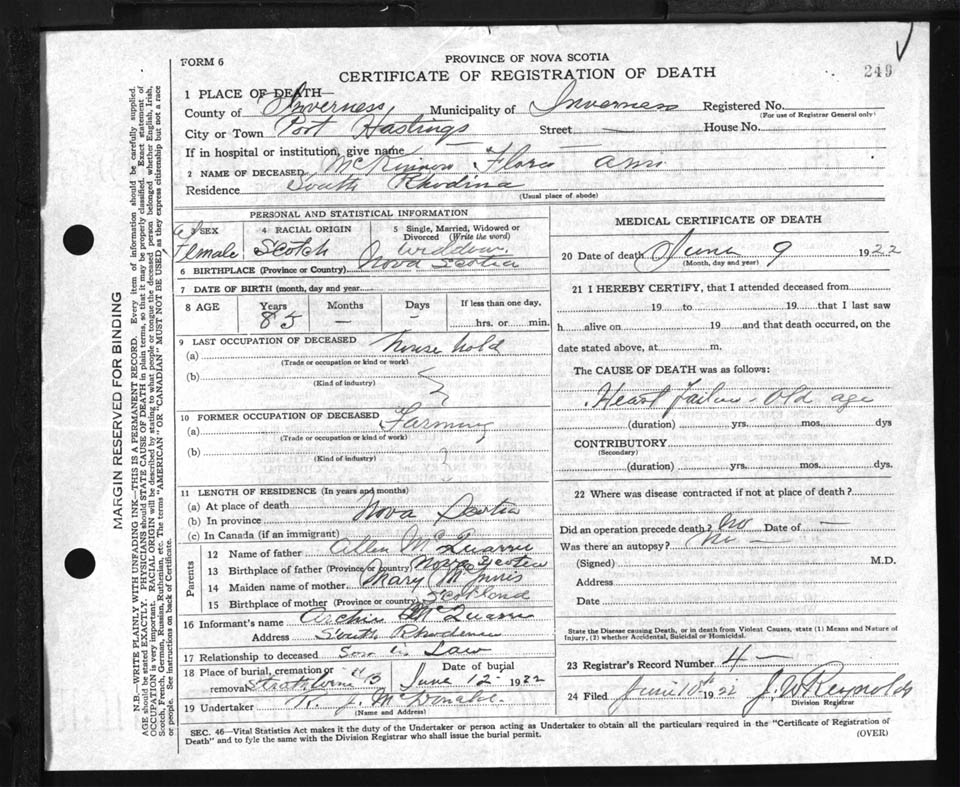 FORM 6
PROVINCE OF NOVA SCOTIA
CERTIFICATE OF REGISTRATION OF DEATH
249
1 PLACE OF DEATH—
County of Inverness Municipality of Inverness Registered No.
(For use of Registrar General only)
City or Town Port Hastings Street — House No.
If in hospital or institution, give name
2 NAME OF DECEASED McKinnon Flora Ann
Residence South Rhodina
(Usual place of abode)
PERSONAL AND STATISTICAL INFORMATION
3 SEX 4 RACIAL ORIGIN 5 Single, Married, Widowed or Divorced (Write the word)
Female Scotch Widdow
6 BIRTHPLACE (Province or Country) Nova Scotia
7 DATE OF BIRTH (month, day and year)
8 AGE Years Months Days If less than one day,
85 — — hrs. or min.
9 LAST OCCUPATION OF DECEASED House hold
(a)
(Trade or occupation or kind or work)
(b)
(Kind of industry)
10 FORMER OCCUPATION OF DECEASED Farming
(a)
(Trade or occupation or kind of work)
(b)
(Kind of industry)
11 LENGTH OF RESIDENCE (In years and months)
(a) At place of death
(b) In province Nova Scotia
(c) In Canada (if an immigrant)
Parents
12 Name of father Allen McQuarrie
13 Birthplace of father (Province or country) Nova Scotia
14 Maiden name of mother Mary McInnis
15 Birthplace of mother (Province or country) Scotland
16 Informant's name Archie McQuarrie
Address South Rhodena
17 Relationship to deceased Son in Law
18 Place of burial, cremation or removal Date of burial
June 12 - 1922
19 Undertaker
(Name and Address)
MEDICAL CERTIFICATE OF DEATH
20 Date of death June 9 1922
(Month, day and year)
21 I HEREBY CERTIFY, that I attended deceased from
19 to 19 that I last saw
h alive on 19 and that death occurred, on the
date stated above, at m.
The CAUSE OF DEATH was as follows:
Heart failure - Old age
(duration) yrs. mos. dys
CONTRIBUTORY
(Secondary)
(duration) yrs. mos. dys.
22 Where was disease contracted if not at place of death?
Did an operation precede death? No Date of —
Was there an autopsy? No —
(Signed) M.D.
Address
Date
State the Disease causing Death, or in death from Violent Causes, state (1) Means and Nature of
Injury, (2) whether Accidental, Suicidal or Homicidal.
23 Registrar's Record Number 4 —
24 Filed June 10th 1922 J. W Reynolds
Division Registrar
SEC. 46—Vital Statistics Act makes it the duty of the Undertaker or person acting as Undertaker to obtain all the particulars required in the "Certificate of Registration of
Death" and to fyle the same with the Division Registrar who shall issue the burial permit. (OVER)
MARGIN RESERVED FOR BINDING
N.B.—WRITE PLAINLY WITH UNFADING INK—THIS IS A PERMANENT RECORD. Every item of information should be carefully supplied.
AGE should be stated EXACTLY. PHYSICIANS should STATE CAUSE OF DEATH in plain terms, so that it may be properly classified. Exact statement of
OCCUPATION is very important. RACIAL ORIGIN will be described by stating to what people or tongue the deceased person belonged whether English, Irish,
Scotch, French, German, Russian, Ruthenian, etc. The terms "AMERICAN" OR "CANADIAN" MUST NOT BE USED as they express citizenship but not a race
or people. See instructions on back of Certificate.